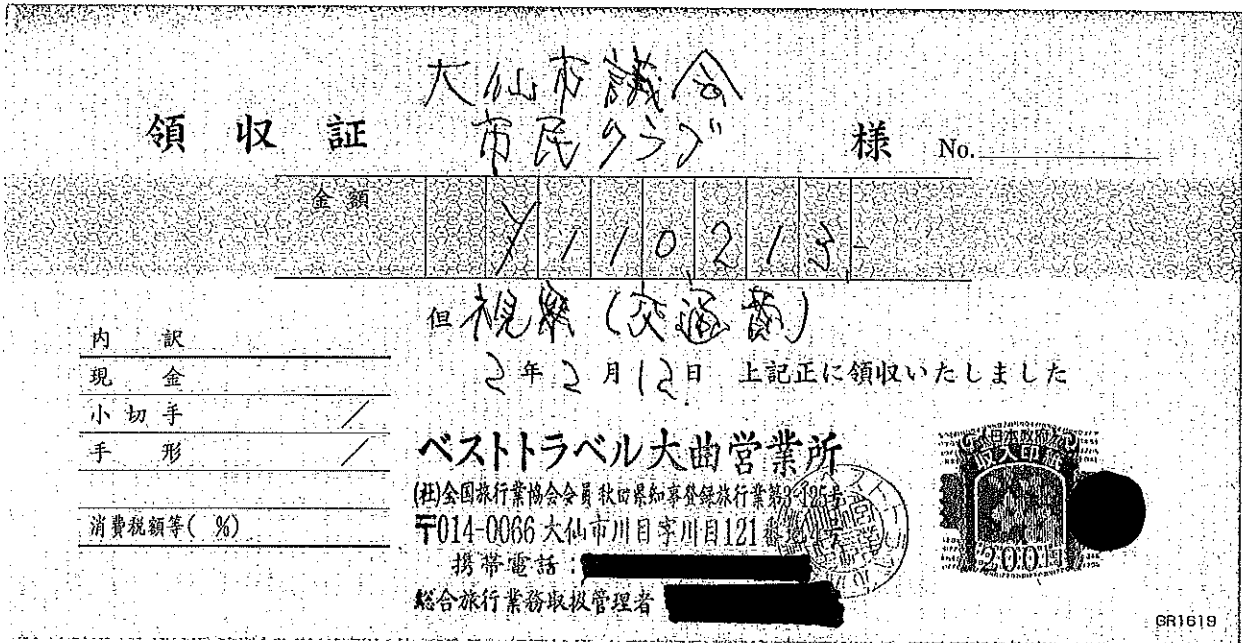 大仙市議会
領収証 市民クラブ 様 No.
金額 ¥110213-
但 視察(交通費)
2年2月12日 上記正に領収いたしました
内訳
現金
小切手 /
手形 /
消費税額等( %)
ベストトラベル大曲営業所
(社)全国旅行業協会会員 秋田県知事登録旅行業第3-125号
〒014-0066 大仙市川目字川目121番
携帯電話:
総合旅行業務取扱管理者
日本政府
収入印紙
200円
GR1619